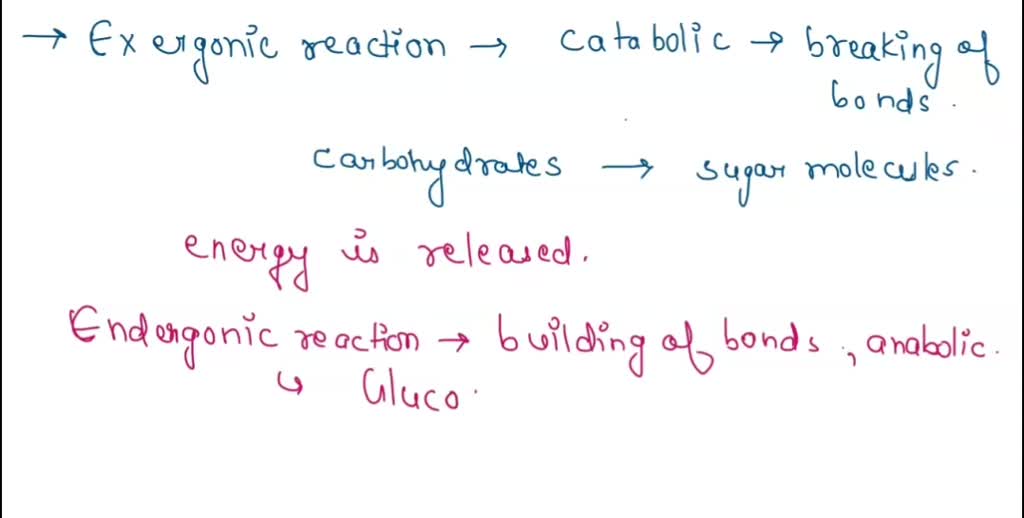 → Exergonic reaction → catabolic → breaking of
bonds.
carbohydrates → sugar molecules.
energy is released.
Endergonic reaction → building of bonds, anabolic.
↳ Gluco